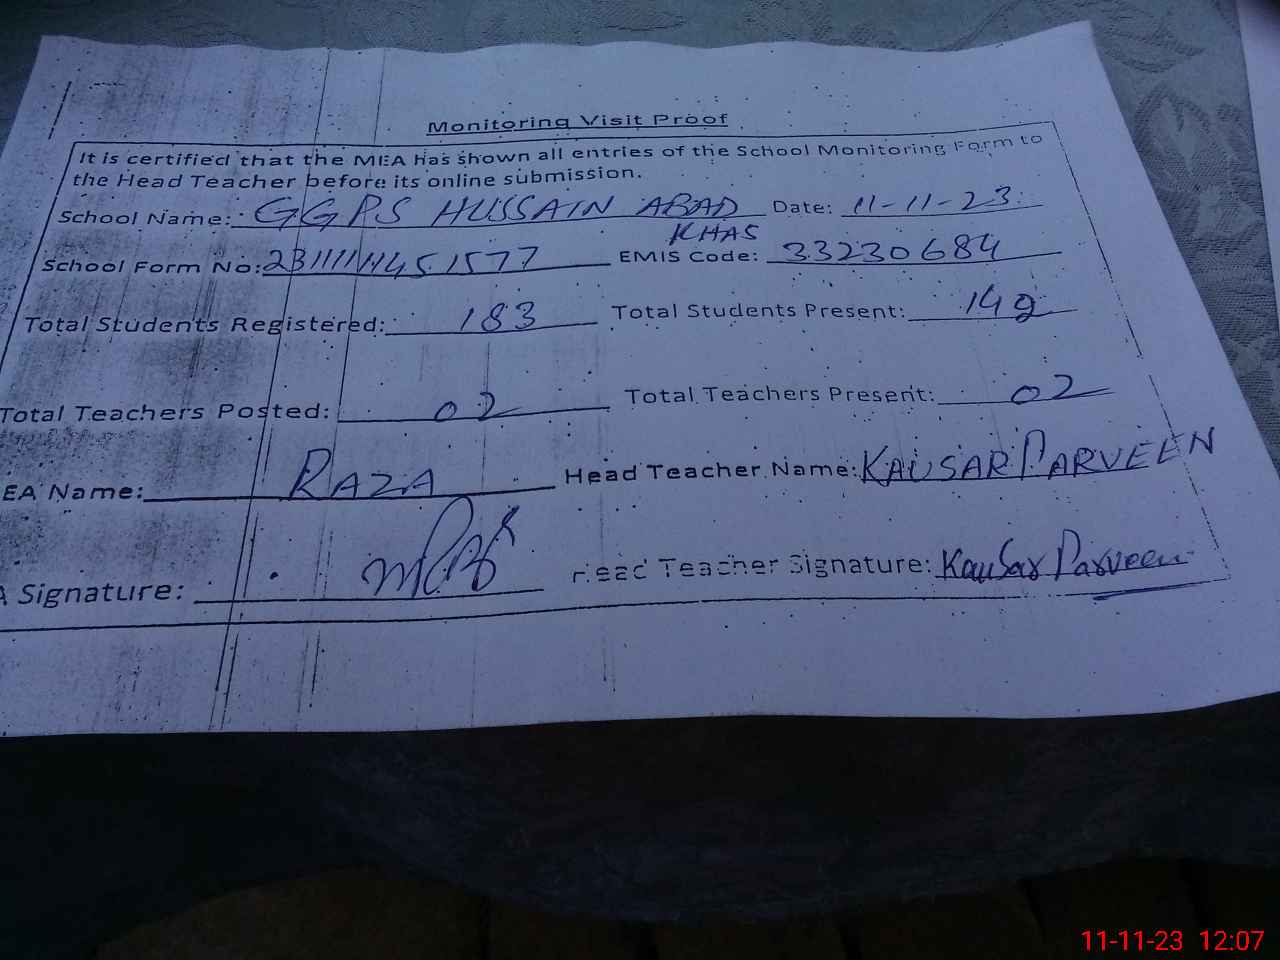 Monitoring Visit Proof
It is certified that the MEA has shown all entries of the School Monitoring Form to
the Head Teacher before its online submission.
School Name: GGPS HUSSAIN ABAD KHAS Date: 11-11-23
School Form No: EMIS Code: 33230684
Total Students Registered: 183 Total Students Present:
Total Teachers Posted: 02 Total Teachers Present: 02
EA Name: RAZA Head Teacher Name: KAUSAR PARVEEN
A Signature: Head Teacher Signature: Kausar Parveen
11-11-23 12:07